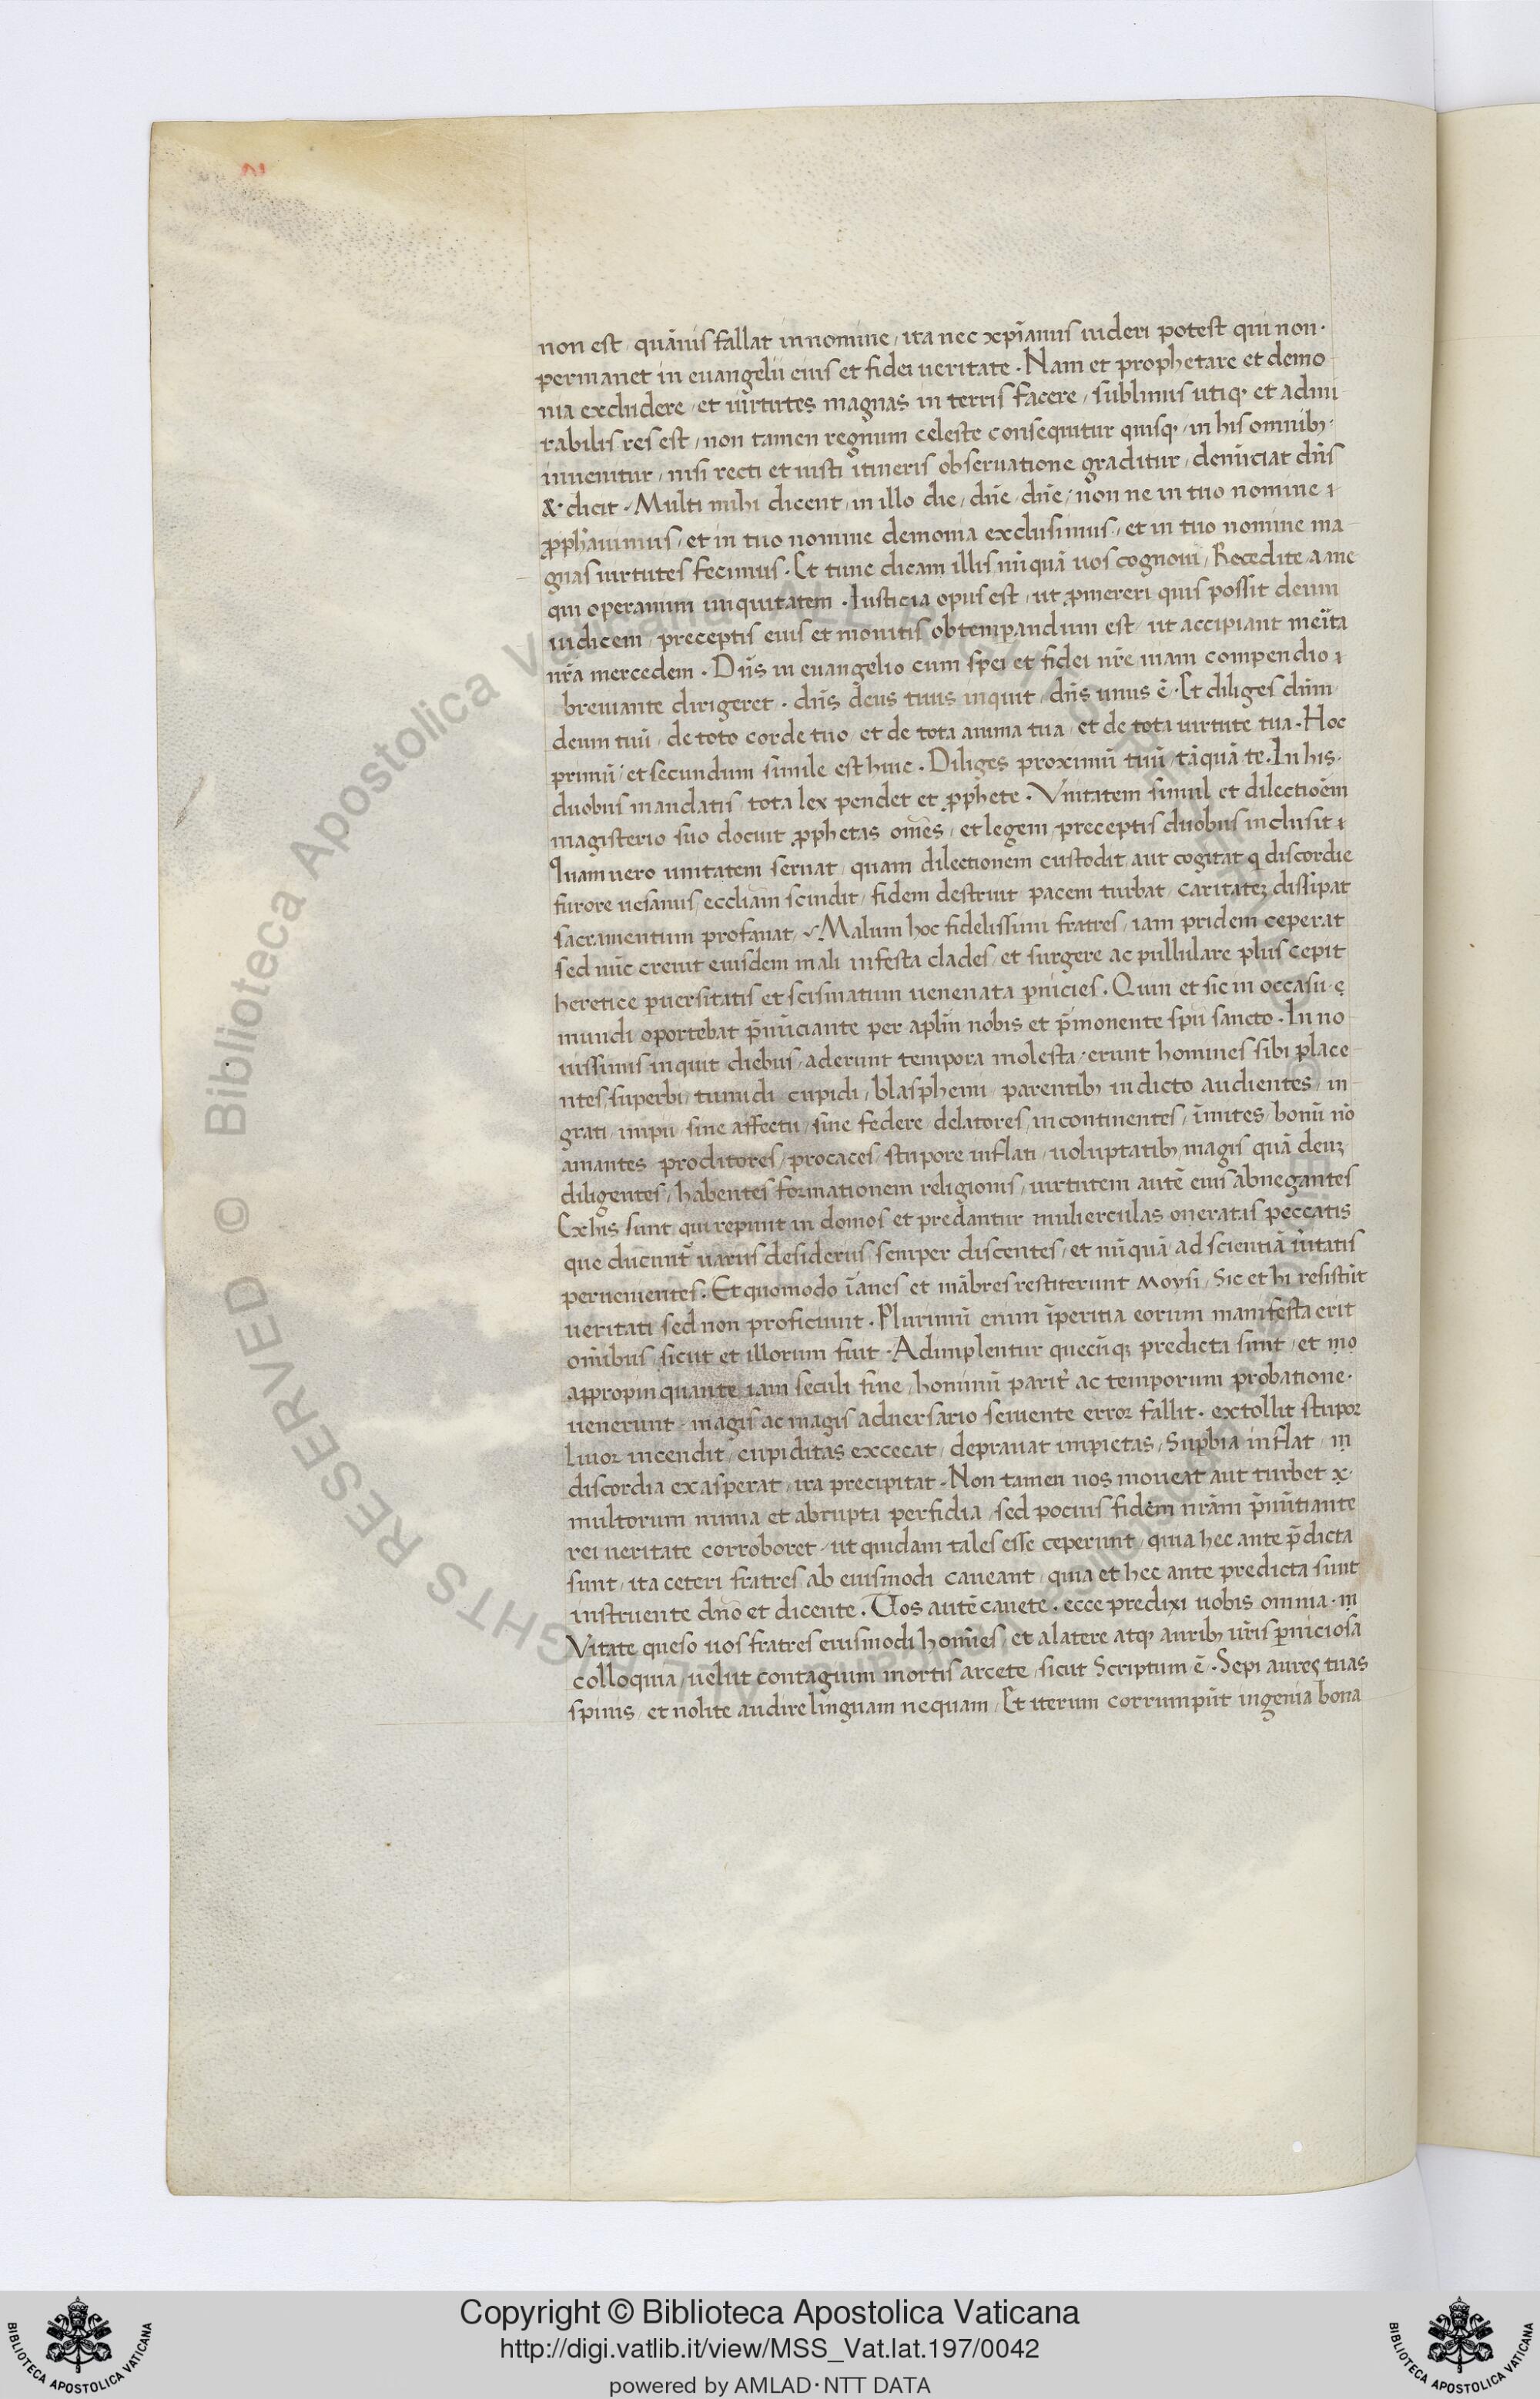 non est, quãuis fallat in nomine, ita nec xp̃ianus uideri potest qui non·
permanet in euangelii eius et fidei ueritate. Nam et prophetare et demo
nia excludere, et uirtutes magnas in terris facere, sublimis utiqꝫ et admi
rabilis res est, non tamen regnum celeste consequitur quisqꝫ, in his omnibꝫ
inuenitur, nisi recti et iusti itineris obseruatione graditur, denũciat dñs
& dicit. Multi mihi dicent, in illo die, dñe, dñe, non ne in tuo nomine
ꝓph̃auimus, et in tuo nomine demonia exclusimus, et in tuo nomine ma
gnas uirtutes fecimus. Et tunc dicam illis nũquã uos cognoui, Recedite a me
qui operamini iniquitatem. Iusticia opus est, ut ꝓmereri quis possit deum
iudicem, preceptis eius et monitis obtemꝑandum est, ut accipiant merita
nr̃a mercedem. Dñs in euangelio cum spei et fidei nr̃e uiam compendio
breuiante dirigeret. dñs deus tuus inquit, dñs unus ẽ. Et diliges dñm
deum tuũ, de toto corde tuo, et de tota anima tua, et de tota uirtute tua. Hoc
primũ, et secundum simile est huic. Diliges proximũ tuũ, tãquã te. In his
duobus mandatis, tota lex pendet et ꝓphete. Vnitatem simul et dilectioẽm
magisterio suo docuit, ꝓphetas om̃es, et legem, preceptis duobus inclusit
Quam uero unitatem seruat, quam dilectionem custodit, aut cogitat q̃ discordie
furore uesanus, eccl̃iam scindit, fidem destruit, pacem turbat, caritateꝫ dissipat
sacramentum profanat. Malum hoc fidelissimi fratres, iam pridem ceperat
sed nũc creuit eiusdem mali infesta clades, et surgere ac pullulare plus cepit
heretice ꝑuersitatis et scismatum uenenata ꝑnicies. Quin et sic in occasu
mundi oportebat p̃nũciante per apl̃m nobis et p̃monente spũ sancto. In no
uissimis inquit diebus, aderunt tempora molesta, erunt homines sibi place
ntes, superbi, tumidi, cupidi, blasphemi, parentibꝫ indicto audientes, in
grati, impii, sine affectu, sine federe, delatores, incontinentes, ĩmites, bonũ nõ
amantes, proditores, procaces, stupore inflati, uoluptatibꝫ magis quã deuꝫ
diligentes, habentes formationem religionis, uirtutem autẽ eius abnegantes
Ex his sunt qui repunt in domos et predantur mulierculas oneratas peccatis
que ducunt᷑ uariis desideriis, semper discentes, et nũquã ad scientiã ũitatis
peruenientes. Et quomodo ĩanes et mãbres restiterunt Moysi, Sic et hi resistũt
ueritati sed non proficiunt. Plurimũ enim ĩperitia eorum manifesta erit
om̃ibus, sicut et illorum fuit. Adimplentur quecũqꝫ predicta sunt, et
appropinquante iam seculi fine, hominũ parit᷑ ac temporum probatione·
uenerunt, magis ac magis aduersario seuiente error fallit. extollit stupor
liuor incendit, cupiditas excecat, deprauat impietas, Suꝑbia inflat,
discordia exasperat, ira precipitat. Non tamen nos moueat aut turbet
multorum nimia et abrupta perfidia, sed pocius fidem nrãm p̃nũtiante
rei ueritate corroboret, ut quidam tales esse ceperunt, quia hec ante p̃dicta
sunt, ita ceteri fratres ab eiusmodi caueant, quia et hec ante predicta sunt
instruente dño et dicente. Vos autẽ cauete. ecce predixi uobis omnia.
Vitate queso uos fratres eiusmodi hom̃ies, et a latere atqꝫ auribꝫ ũris ꝑniciosa
colloquia, uelut contagium mortis arcete, sicut Scriptum ẽ. Sepi aures tuas
spinis, et nolite audire linguam nequam, Et iterum corrumpũt ingenia bona
© Biblioteca Apostolica Vaticana ALL RIGHTS RESERVED
Copyright © Biblioteca Apostolica Vaticana
http://digi.vatlib.it/view/MSS_Vat.lat.197/0042
powered by AMLAD·NTT DATA
BIBLIOTECA APOSTOLICA VATICANA
BIBLIOTECA APOSTOLICA VATICANA